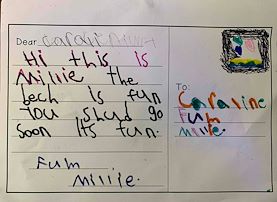 Dear
Hi this is
Millie the
bech is fun
You shud go
Soon its fun.
Fum
Millie.
To:
Caraline
Fum
Millie.